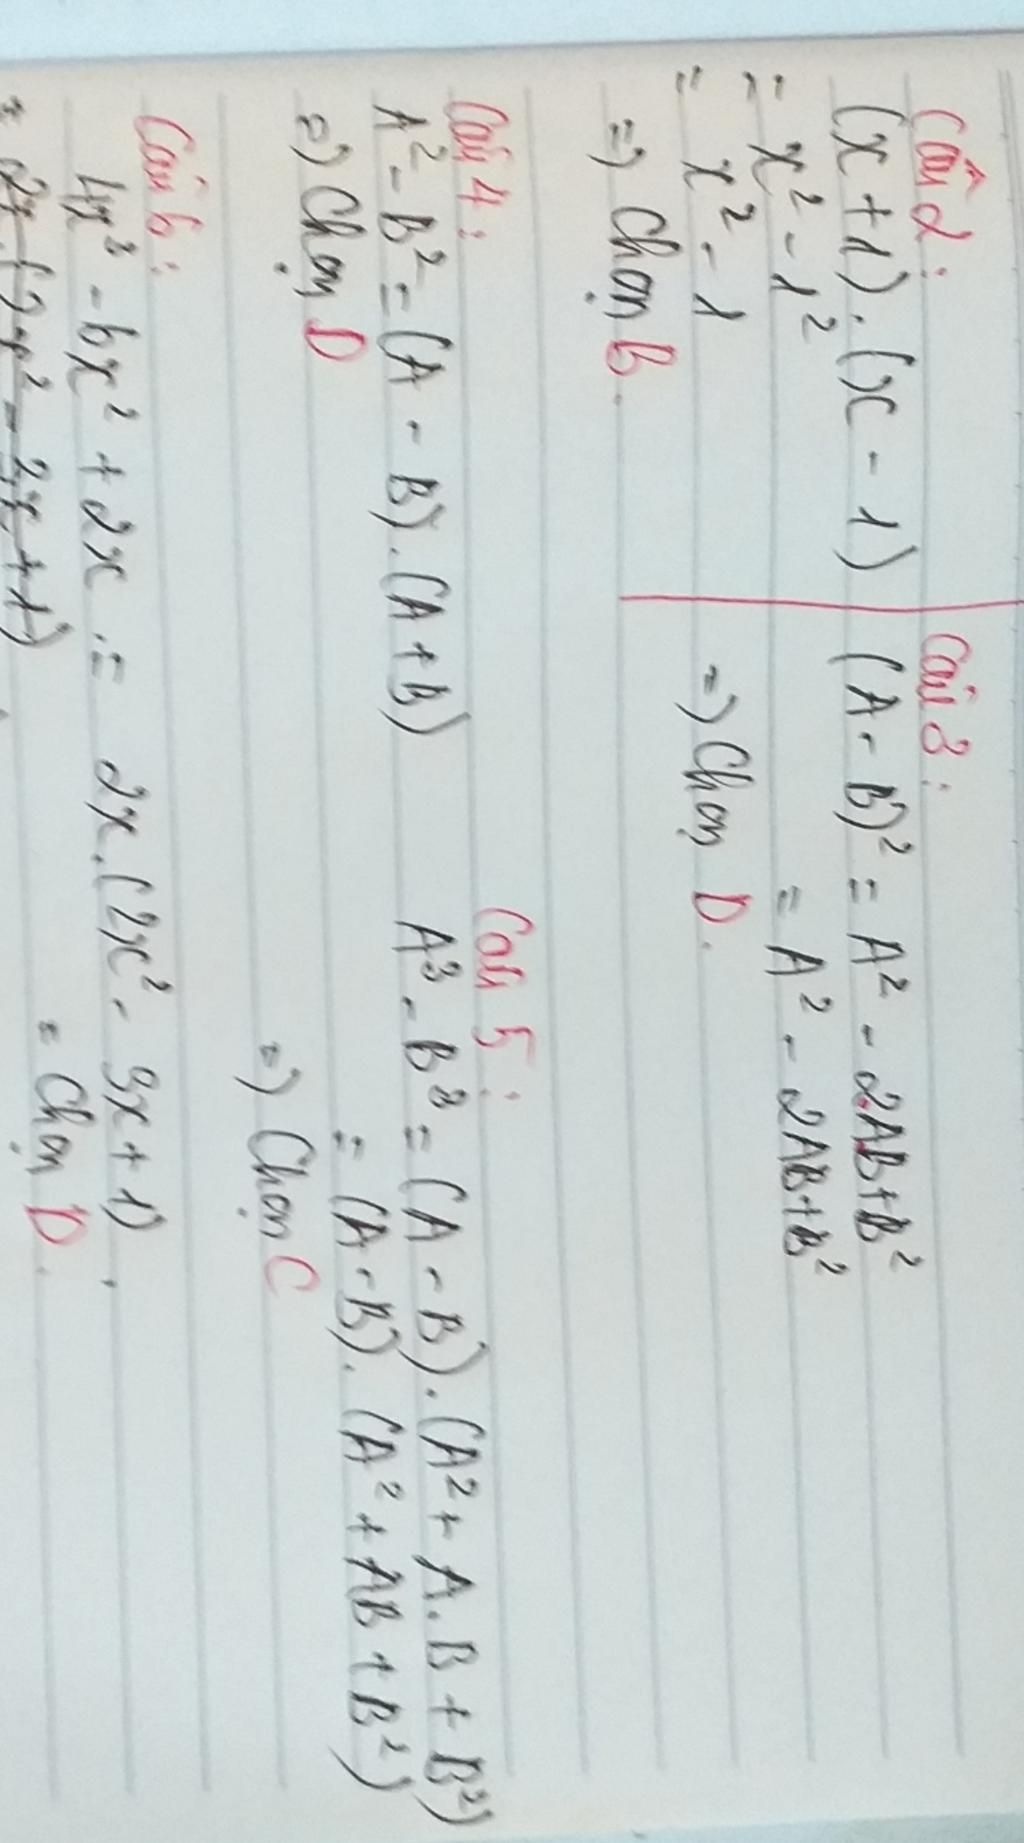 Câu 2:
(x + 1).(x - 1)
= x² - 1²
= x² - 1
=) Chọn B.
Câu 3:
(A - B)² = A² - 2AB + B²
= A² - 2AB + B²
=) Chọn D.
Câu 4:
A² - B² = (A - B).(A + B)
=) Chọn D
Câu 5:
A³ - B³ = (A - B).(A² + A.B + B²)
= (A - B).(A² + AB + B²)
=) Chọn C
Câu 6:
4x³ - 6x² + 2x = 2x.(2x² - 3x + 1).
= 2x.(2x² - 3x + 1)
= Chọn D.